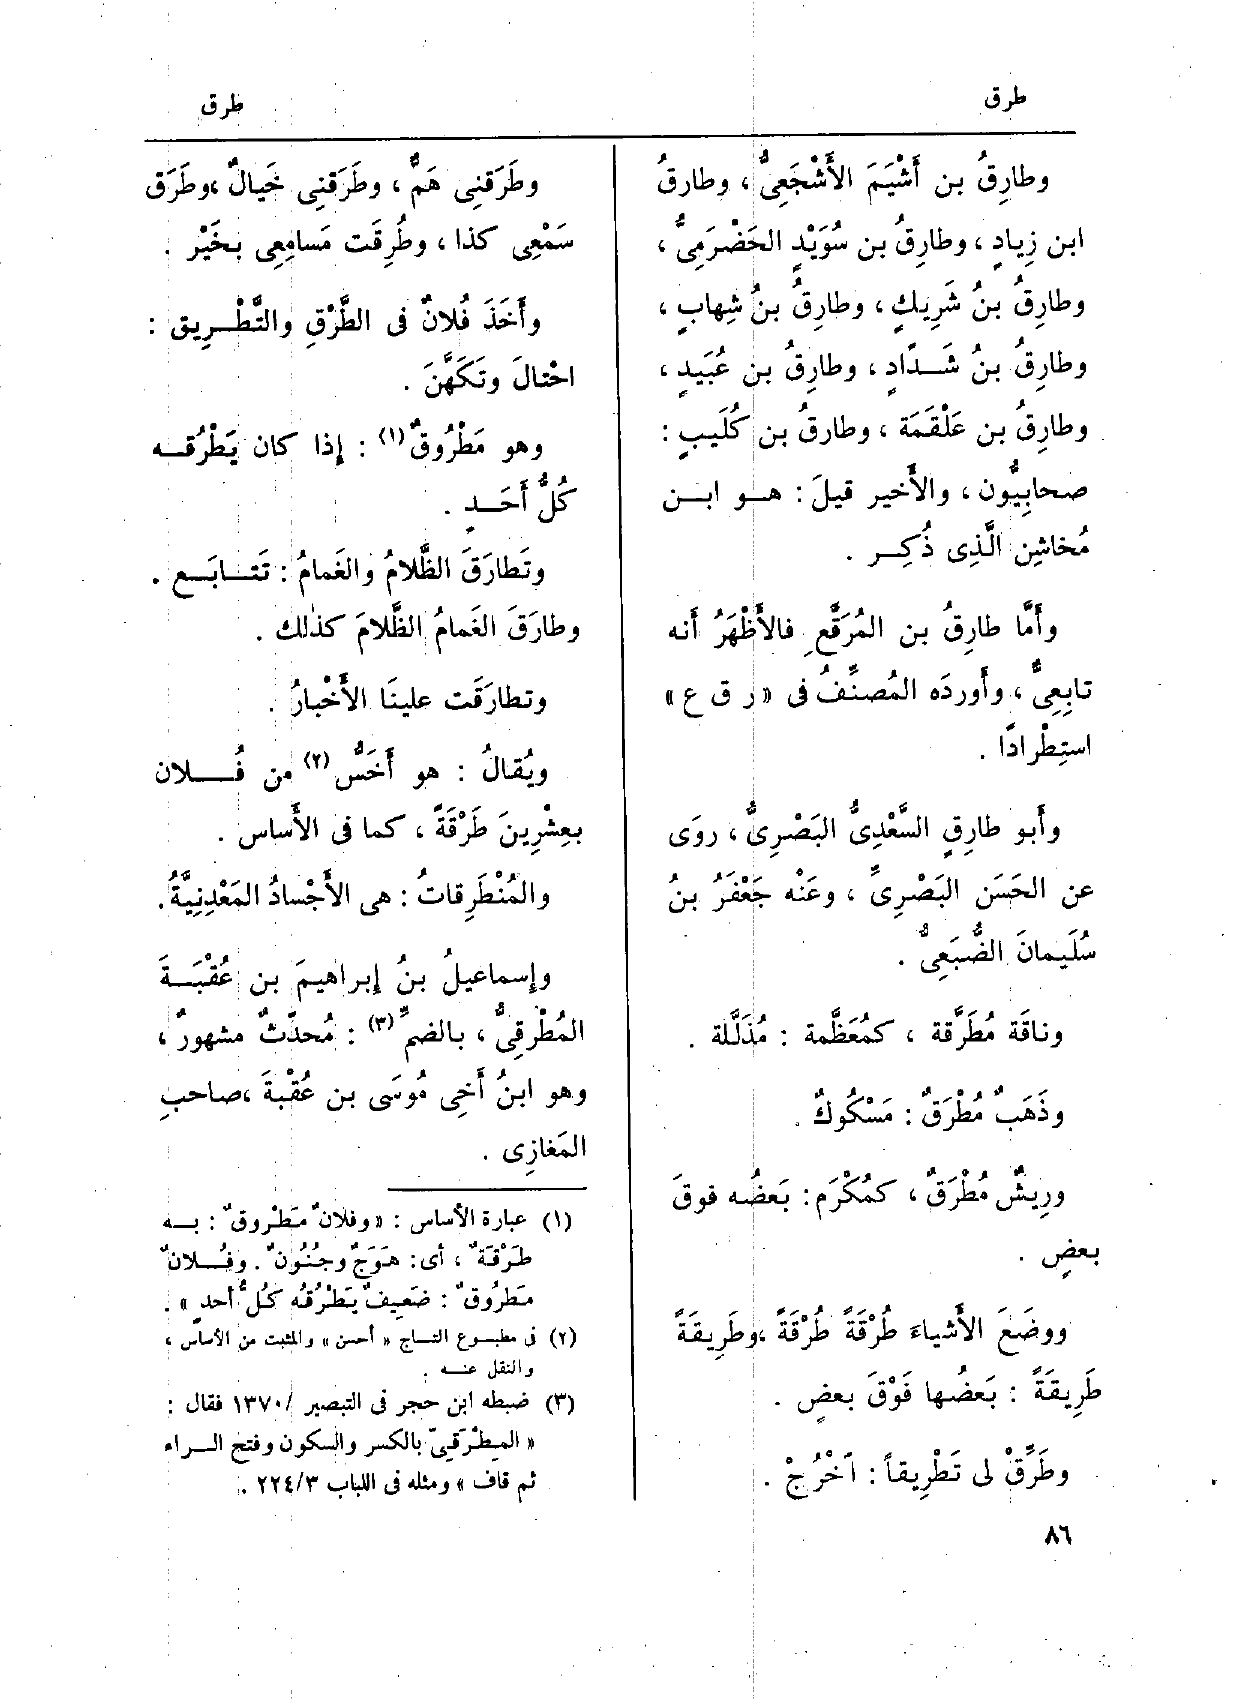 طرق
طرق
وطارِقُ بن أَشْيَمَ الأَشْجَعِىُّ ، وطارقُ
ابن زِيادٍ ، وطارِقُ بن سُوَيْدٍ الحَضْرَمِىُّ ،
وطارِقُ بنُ شَرِيكٍ ، وطارِقُ بنُ شِهابٍ ،
وطارِقُ بنُ شَدَّادٍ ، وطارِقُ بن عُبَيدٍ ،
وطارِقُ بن عَلْقَمَة ، وطارقُ بن كُلَيبٍ :
صحابِيُّون ، والأَخير قيلَ : هو ابن
مُخاشِن الَّذِى ذُكِر .
وأَمَّا طارِقُ بن المُرَقَّعِ فالأَظْهَرُ أنه
تابِعِىٌّ ، وأَوردَه المُصنِّفُ فى « ر ق ع »
استِطْرادًا .
وأَبو طارِقٍ السَّعْدِىُّ البَصْرِىُّ ، روَى
عن الحَسَن البَصْرِىِّ ، وعَنْه جَعْفَرُ بنُ
سُلَيمانَ الضُّبَعِىُّ .
وناقَة مُطَرَّقة ، كمُعَظَّمة : مُذَلَّلة .
وذَهَبٌ مُطْرَقٌ : مَسْكُوكٌ .
ورِيشٌ مُطْرَقٌ ، كمُكْرَم : بَعضُه فوقَ
بعضٍ .
ووضَعَ الأَشياءَ طُرْقَةً طُرْقَةً ، وطَرِيقةً
طَرِيقَةً : بَعضُها فَوْقَ بعضٍ .
وطَرِّقْ لى تَطْرِيقاً : اَخْرُجْ .
وطَرَقَنِى هَمٌّ ، وطَرَقنِى خَيالٌ ، وطَرَق
سَمْعِى كذا ، وطُرِقَت مَسامِعِى بخَيْر .
وأَخَذَ فُلانٌ فى الطَّرْقِ والتَّطْرِيق :
احْتالَ وتَكَهَّنَ .
وهو مَطْرُوقٌ (١) : إِذا كان يَطْرُقه
كُلُّ أَحَدٍ .
وتَطارَقَ الظَّلامُ والغَمامُ : تَتابَع .
وطارَقَ الغَمامُ الظَّلامَ كذٰلك .
وتطارَقَت علينَا الأَخْبارُ .
ويُقالُ : هو أَخَسُّ (٢) من فُلان
بعِشْرِينَ طَرْقَةً ، كما فى الأَساس .
والمُنْطَرِقاتُ : هى الأَجْسادُ المَعْدِنِيَّةُ .
وإسماعيلُ بنُ إبراهيمَ بن عُقْبَةَ
المُطْرقِىُّ ، بالضمِّ (٣) : مُحدِّثٌ مشهورٌ ،
وهو ابنُ أَخِى مُوسَى بن عُقْبةَ ، صاحبِ
المَغازِى .
(١) عبارة الأساس : « وفلانٌ مَطْروقٌ : به
طَرْقَةٌ ، أى : هَوَجٌ وجُنُونٌ . وفُلانٌ
مَطرُوقٌ : ضَعِيفٌ يَطْرُقُه كُلُّ أحدٍ » .
(٢) فى مطبوع التاج « أحسن » والمثبت من الأساس ،
والنقل عنه .
(٣) ضبطه ابن حجر فى التبصير /١٣٧٠ فقال :
« المِطْرَقِىّ بالكسر والسكون وفتح الراء
ثم قاف » ومثله فى اللباب ٢٢٤/٣ .
٨٦